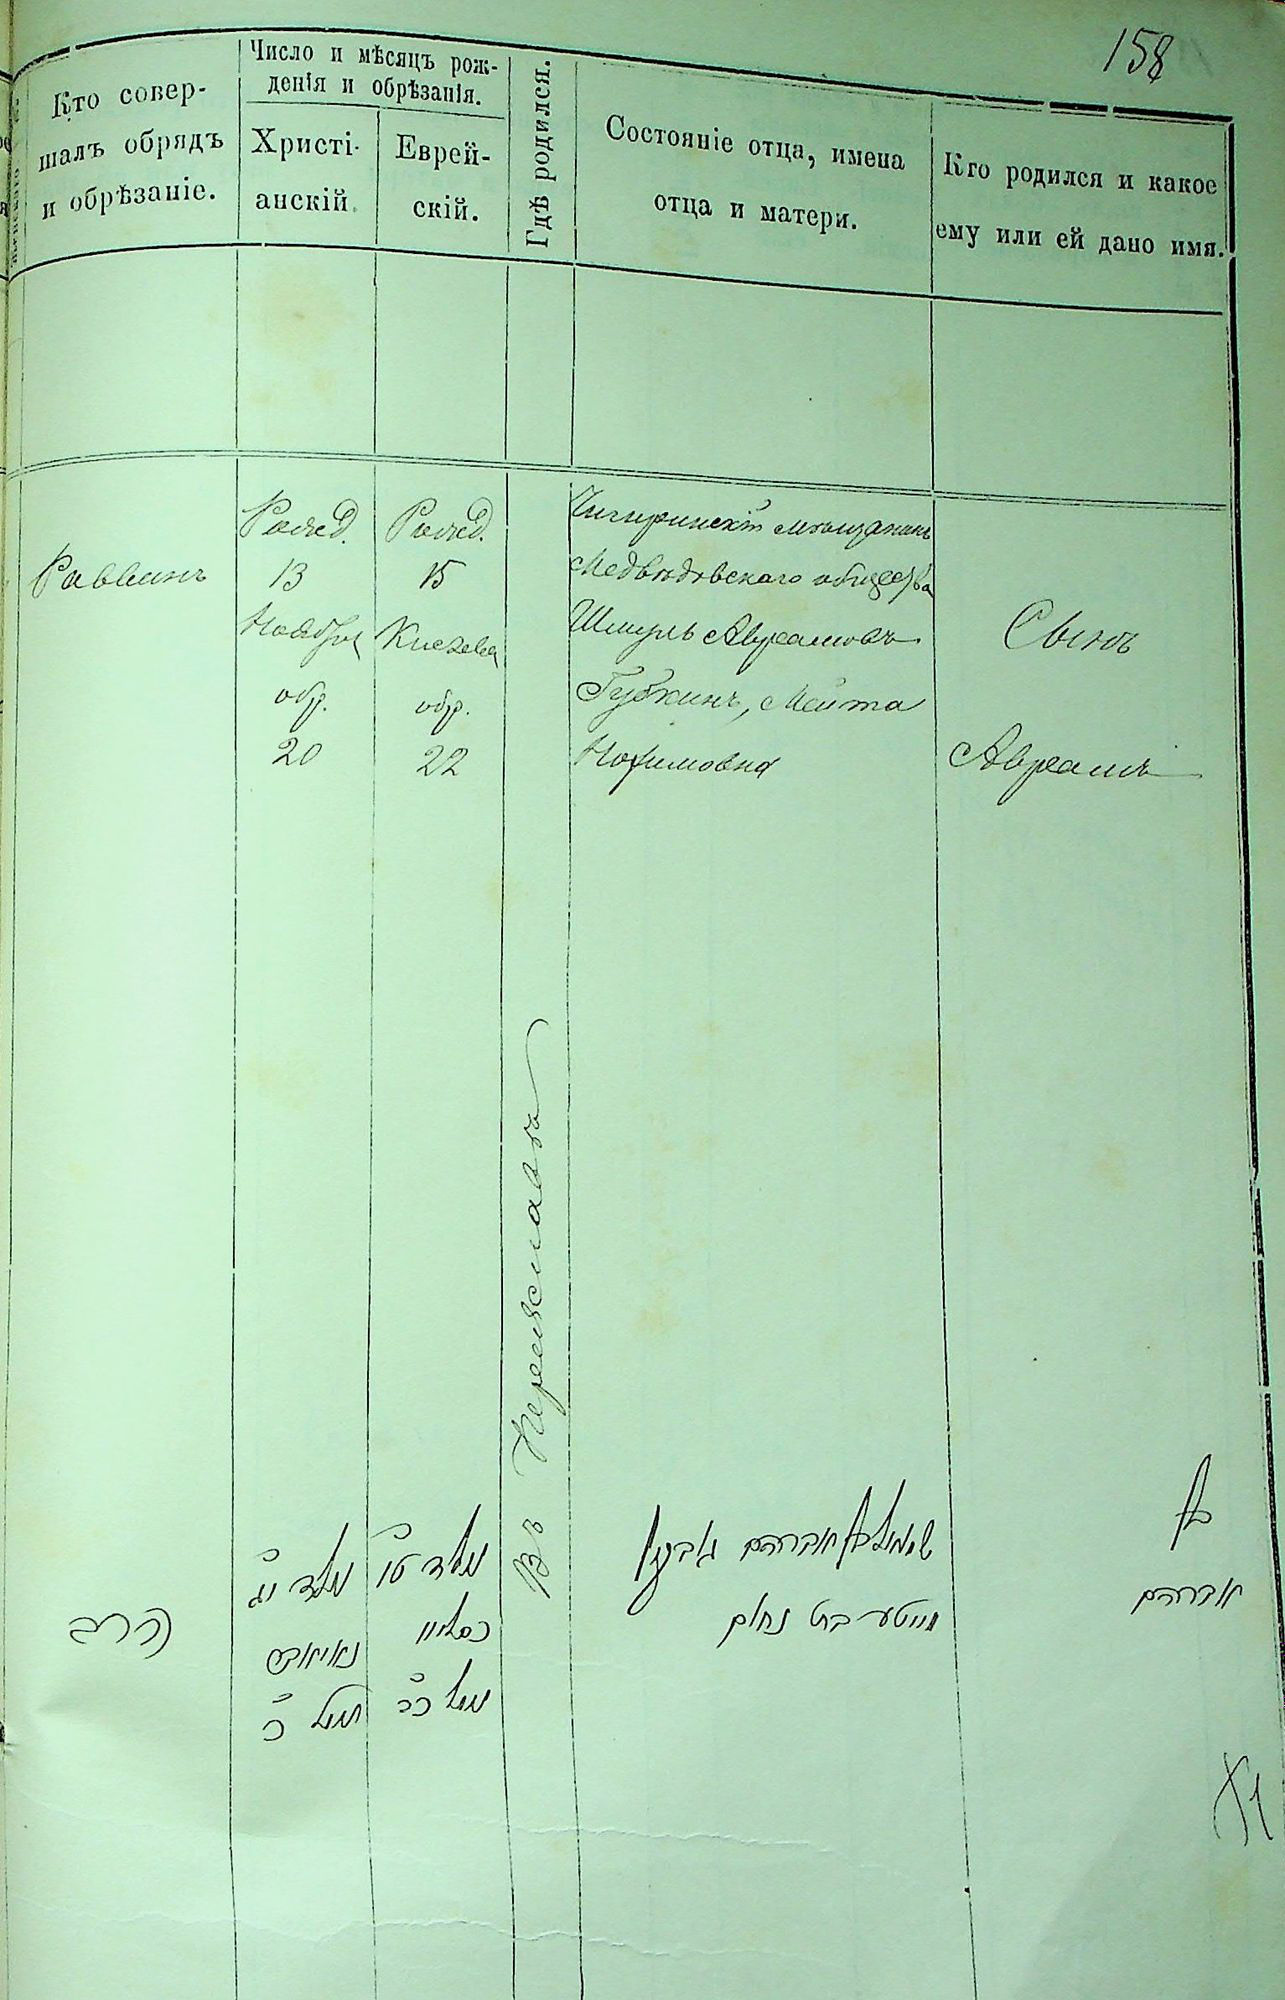 158
Кто совер-
шалъ обрядъ
и обрѣзаніе.
Число и мѣсяцъ рож-
денія и обрѣзанія.
Христі-
анскій.
Еврей-
скій.
Гдѣ родился.
Состояніе отца, имена
отца и матери.
Кто родился и какое
ему или ей дано имя.
Раввинъ
Рожд.
13
Ноября
обр.
20
Рожд.
15
Кислева
обр.
22
Въ Переяславѣ
Чигиринскій мѣщанинъ
Медвѣдовскаго общества
Шмуль Авраамовъ
Губкинъ, Мейта
Нохимовна
Сынъ
Авраамъ
הרב
נולד יג
נאיאבר
נימול כ
נולד טו
כסליו
נימול כב
שמואל בן אברהם גובקין
מייטע בת נחום
בן
אברהם